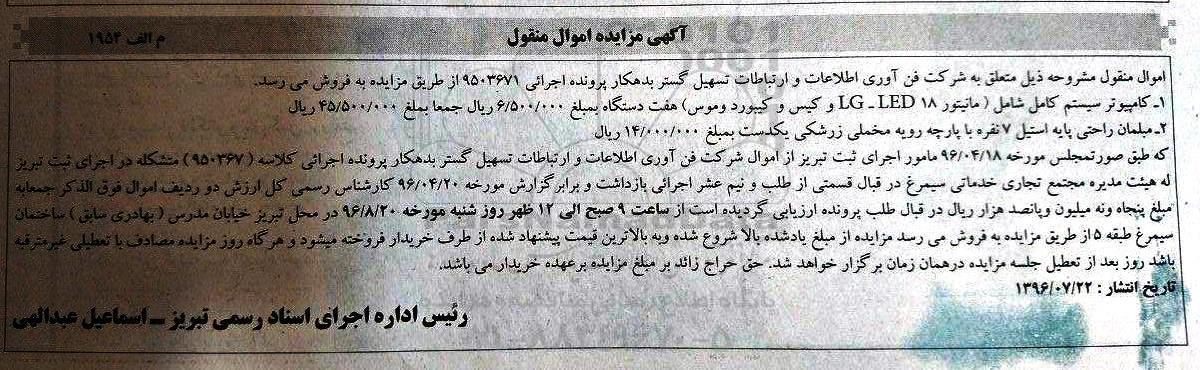 آگهی مزایده اموال منقول
م الف ۱۹۵۴
اموال منقول مشروحه ذیل متعلق به شرکت فن آوری اطلاعات و ارتباطات تسهیل گستر بدهکار پرونده اجرائی ۹۵۰۳۶۷۱ از طریق مزایده به فروش می رسد.
۱ـ کامپیوتر سیستم کامل شامل ( مانیتور ۱۸ LG ـ LED و کیس و کیبورد وموس) هفت دستگاه بمبلغ ۶/۵۰۰/۰۰۰ ریال جمعا بمبلغ ۴۵/۵۰۰/۰۰۰ ریال
۲ـ مبلمان راحتی پایه استیل ۷ نفره با پارچه رویه مخملی زرشکی یکدست بمبلغ ۱۴/۰۰۰/۰۰۰ ریال
که طبق صورتمجلس مورخه ۹۶/۰۴/۱۸ مامور اجرای ثبت تبریز از اموال شرکت فن آوری اطلاعات و ارتباطات تسهیل گستر بدهکار پرونده اجرائی کلاسه ( ۹۵۰۳۶۷ ) متشکله در اجرای ثبت تبریز
له هیئت مدیره مجتمع تجاری خدماتی سیمرغ در قبال قسمتی از طلب و نیم عشر اجرائی بازداشت و برابرگزارش مورخه ۹۶/۰۴/۲۰ کارشناس رسمی کل ارزش دو ردیف اموال فوق الذکر جمعابه
مبلغ پنجاه ونه میلیون وپانصد هزار ریال در قبال طلب پرونده ارزیابی گردیده است از ساعت ۹ صبح الی ۱۲ ظهر روز شنبه مورخه ۹۶/۸/۲۰ در محل تبریز خیابان مدرس ( بهادری سابق ) ساختمان
سیمرغ طبقه ۵ از طریق مزایده به فروش می رسد مزایده از مبلغ یادشده بالا شروع شده وبه بالاترین قیمت پیشنهاد شده از طرف خریدار فروخته میشود و هرگاه روز مزایده مصادف با تعطیلی غیرمترقبه
باشد روز بعد از تعطیل جلسه مزایده درهمان زمان برگزار خواهد شد. حق حراج زائد بر مبلغ مزایده برعهده خریدار می باشد.
تاریخ انتشار : ۱۳۹۶/۰۷/۲۲
رئیس اداره اجرای اسناد رسمی تبریز ـ اسماعیل عبدالهی